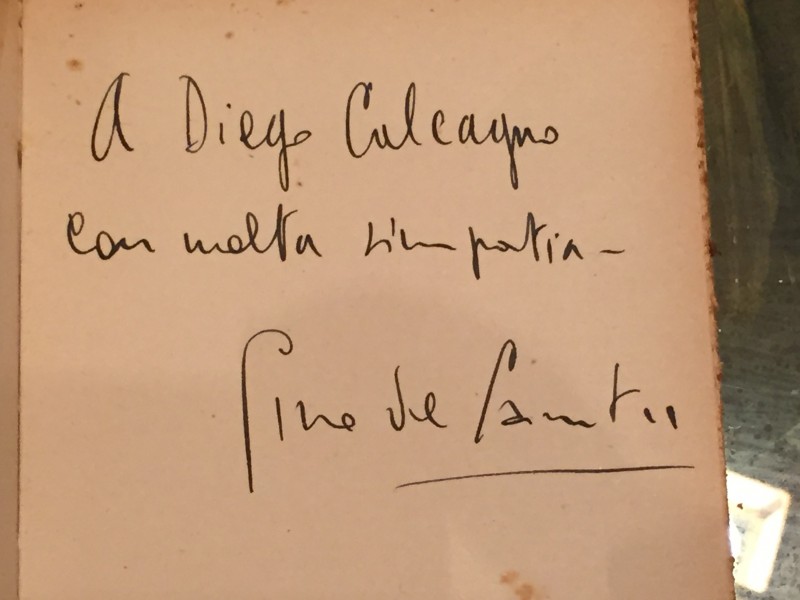 A Diego Calcagno
con molta simpatia -
Gino de Sanctis